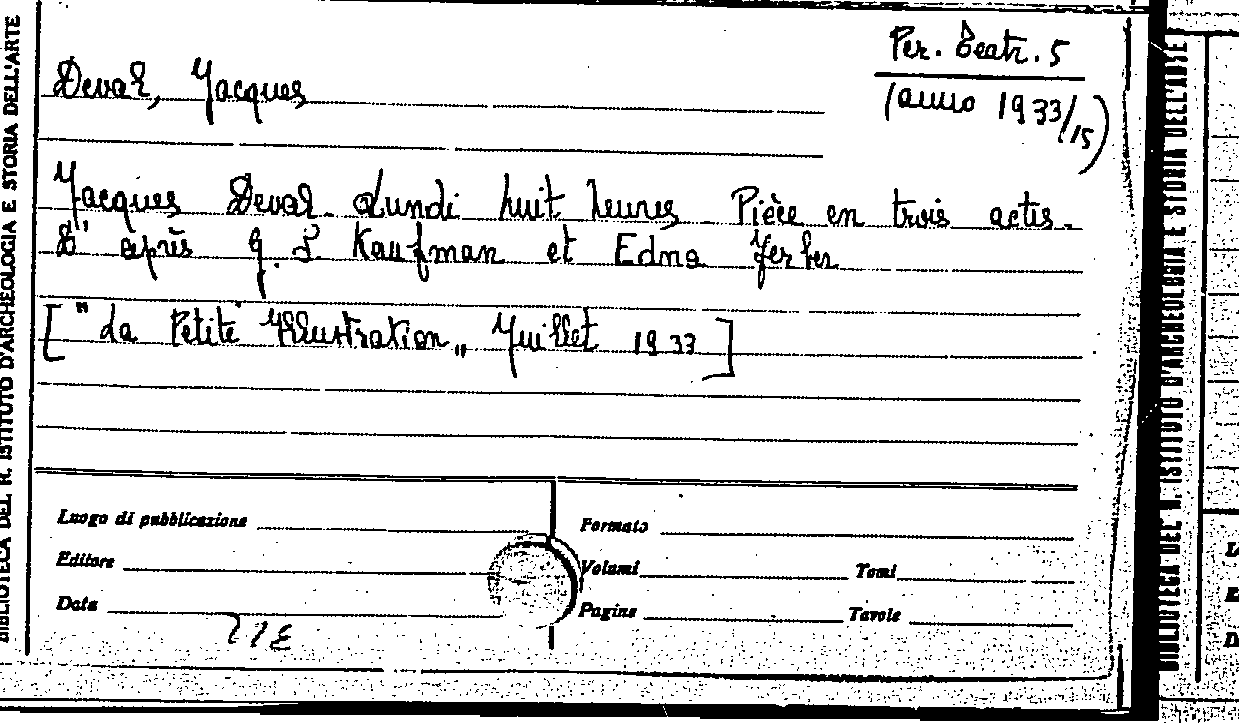 Per. Teatr. 5
(anno 1933/15)
Deval, Jacques
Jacques Deval. Lundi huit heures. Pièce en trois actes.
D'après G. S. Kaufman et Edna Ferber
["La Petite Illustration„ Juillet 1933]
Luogo di pubblicazione
Editore
Data
Formato
Volumi Tomi
Pagine Tavole
BIBLIOTECA DEL R. ISTITUTO D'ARCHEOLOGIA E STORIA DELL'ARTE
BIBLIOTECA DEL R. ISTITUTO D'ARCHEOLOGIA E STORIA DELL'ARTE